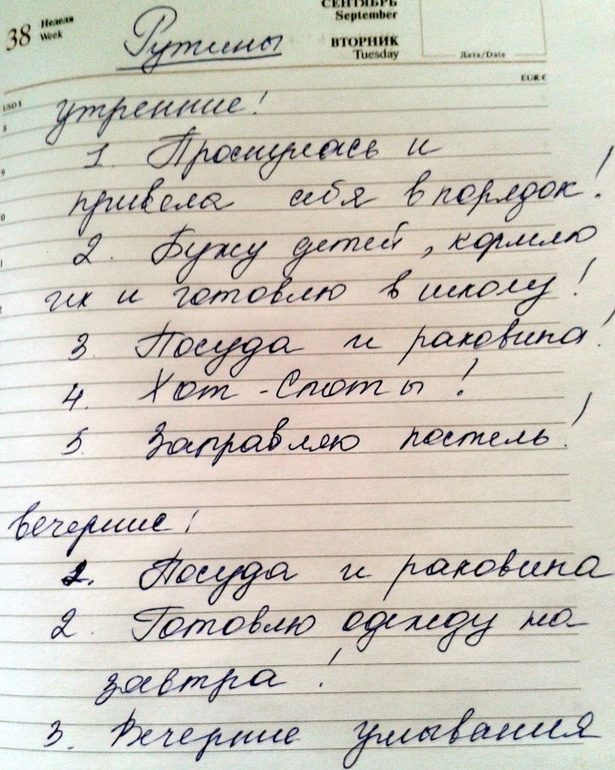 38 Неделя
Week
СЕНТЯБРЬ
September
ВТОРНИК
Tuesday
Дата/Date
USD $
EUR €
Рутины
утренние!
1. Проснулась и
привела себя в порядок!
2. Бужу детей, кормлю
их и готовлю в школу!
3. Посуда и раковина!
4. Хот-Споты!
5. Заправляю постель!
вечерние!
1. Посуда и раковина
2. Готовлю одежду на
завтра!
3. Вечерние умывания